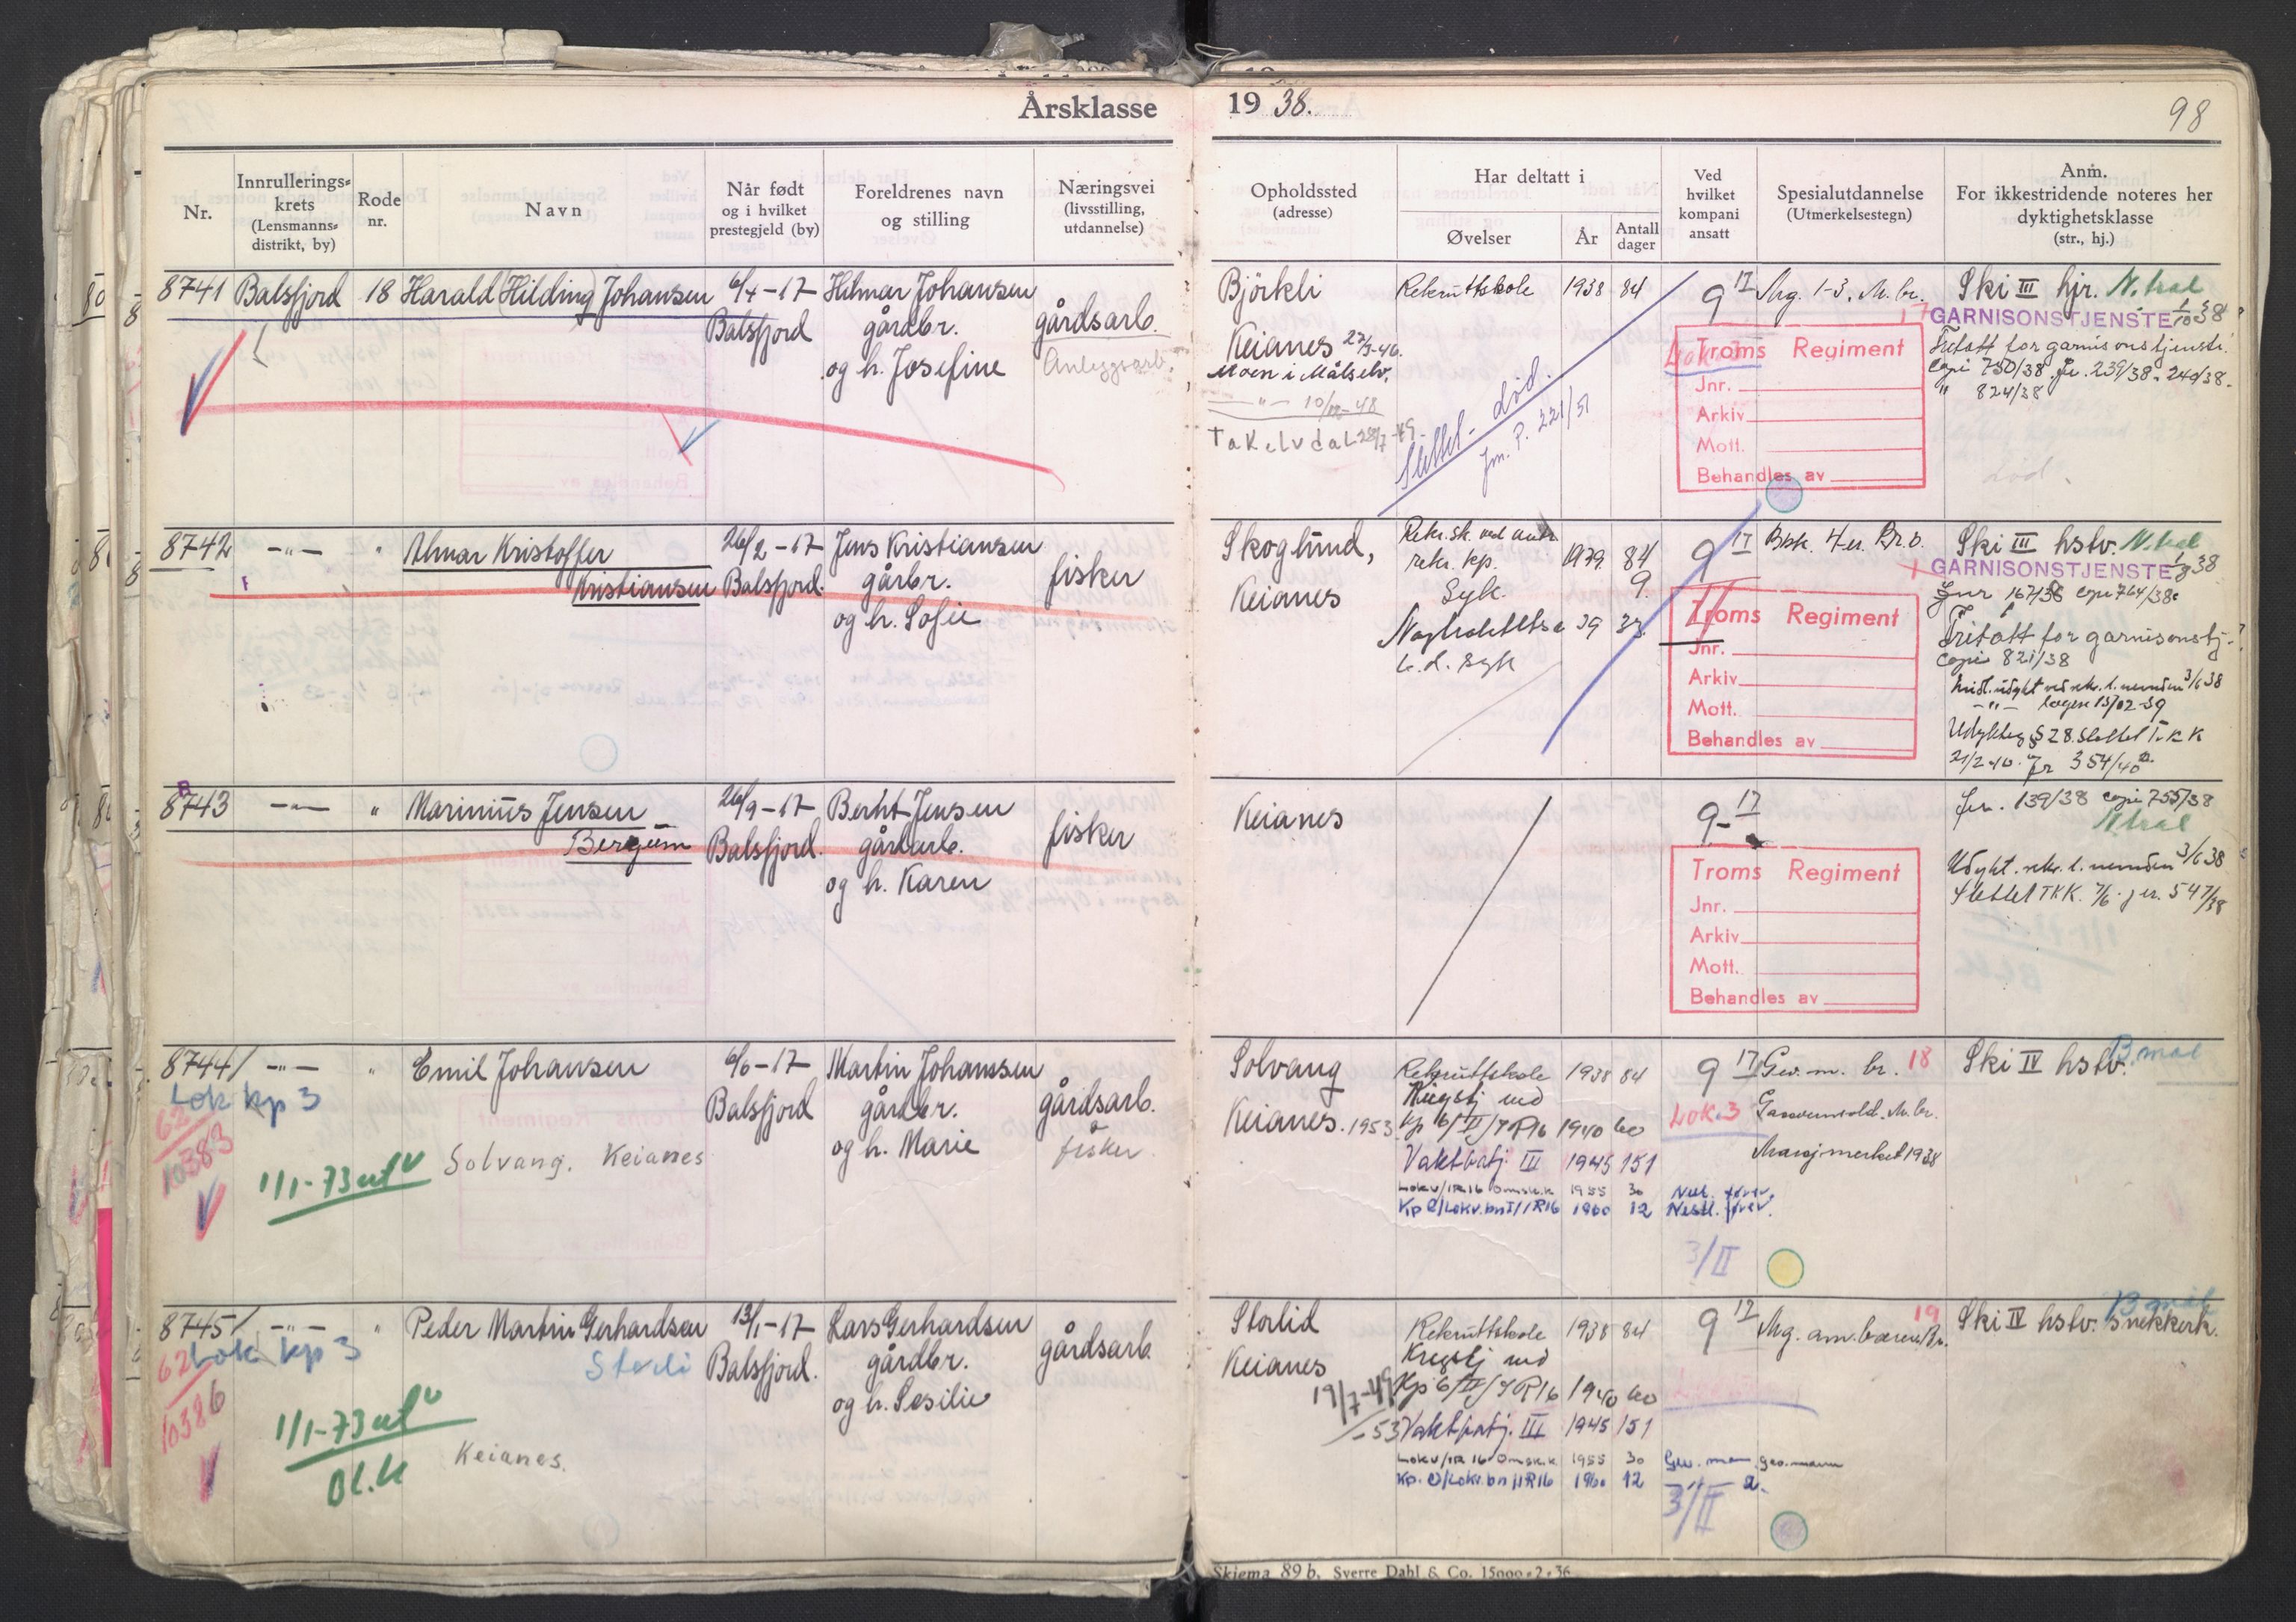 Årsklasse 19 38.
98
Nr.
Innrullerings-
krets
(Lensmanns-
distrikt, by)
Rode
nr.
Navn
Når født
og i hvilket
prestegjeld (by)
Foreldrenes navn
og stilling
Næringsvei
(livsstilling,
utdannelse)
Opholdssted
(adresse)
Har deltatt i
Øvelser
År
Antall
dager
Ved
hvilket
kompani
ansatt
Spesialutdannelse
(Utmerkelsestegn)
Anm.
For ikkestridende noteres her
dyktighetsklasse
(str., hj.)
8741 Balsfjord 18 Harald (Hilding) Johansen 6/4-17 Hilmar Johansen
Balsfjord gårdbr. gårdsarb.
og h. Josefine Anleggsarb.
Björkli
Keianes 22/3-46.
Moen i Målselv.
—"— 10/12-48
Takelvdal 28/7-49
Rekruttskole 1938 84
Slettet - död.
jnr. P. 221/51
9 17 Mrg. 1-3. M. br.
Lok.
Troms Regiment
Jnr.
Arkiv
Mott.
Behandles av
Ski III hjr. N.tral
GARNISONSTJENSTE 1/10 38
Fritatt for garnisonstjenste.
Copi 750/38. jr. 239/38. 240/38.
" 824/38
död.
8742 —"— " Almar Kristoffer 26/2-17 Jens Kristiansen
Kristiansen Balsfjord. gårbr. fisker
og h. Sofie
Skoglund,
Keianes
Rekr.sk. ved
rekr. kp. 1939. 84
Syk. 9.
39 33.
syk
9 17
Troms Regiment
Jnr.
Arkiv
Mott.
Behandles av
Ski III hstv. N.tral
GARNISONSTJENSTE 1/8 38
Jnr 167/38 copi 764/38
Fritatt for garnisonstj.
Copi 821/38
3/6 38
—"— 13/02-39
§ 28. Slettet T.K.K
21/2 40. Jr 354/40
8743 —"— " Marinius Jensen 26/9-17 Berht Jensen
Bergum Balsfjord. gårdarb. fisker
og h. Karen
Keianes
9-17
Troms Regiment
Jnr.
Arkiv
Mott.
Behandles av
jnr. 139/38 copi 755/38
N.tral
Udykt. rekr. l. nemnden 3/6 38
Slettet TKK. 7/6. jnr. 547/38
8744/ —"— " Emil Johansen 6/6-17 Martin Johanssen
Lok kp 3 Balsfjord gårdbr. gårdsarb.
62 og h. Marie fisker
10383
1/1-73 utv Solvang. Keianes
Solvang
Keianes. 1953
Rekruttskole 1938 84
Krigstj med
Kp 6/II/IR16 1940 60
Vaktbatj. III 1945 151
Lokv/IR16 Omsk.k 1955 30
Kp 2/Lokv.bn I/IR16 1960 12
9 17 Gev. m. br. 18
Lok. 3
Marsjmerket 1938
3/II
Ski IV hstv. B mål
8745/ —"— " Peder Martin Gerhardsen 13/1-17 Lars Gerhardsen
Lok kp 3 Storli Balsfjord. gårdbr. gårdsarb.
62 og h. Sesilie
10386
1/1-73 utv
Bl.k
Keianes.
Storlid
Keianes
19/7-49
-53
Rekruttskole 1938 84
Krigstj med
Kp 6/II/IR16 1940 60
Vaktbatj. III 1945 151
Lokv/IR 16 Omsk.k 1955 30
Kp. 2/Lokv.bn I/IR16 1960 12
9 17 Mrg. am. bærer. Br. 19
3/II
Ski IV hstv. B mål
Snekkerk.
Skjema 89 b. Sverre Dahl & Co. 15000-2-36